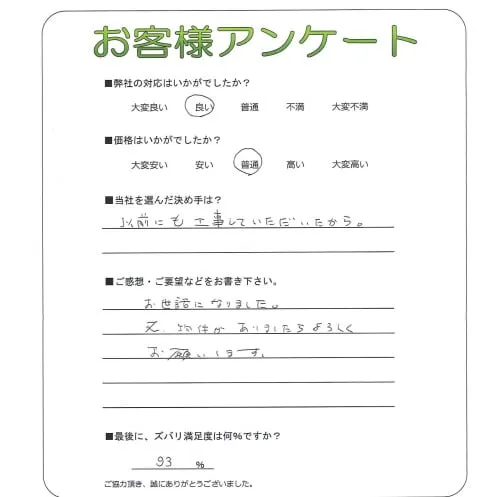 お客様アンケート
■弊社の対応はいかがでしたか?
大変良い 良い 普通 不満 大変不満
■価格はいかがでしたか?
大変安い 安い 普通 高い 大変高い
■当社を選んだ決め手は?
以前にも工事していただいたから。
■ご感想・ご要望などをお書き下さい。
お世話になりました。
又、物件がありましたらよろしく
お願いします。
■最後に、ズバリ満足度は何%ですか?
93 %
ご協力頂き、誠にありがとうございました。